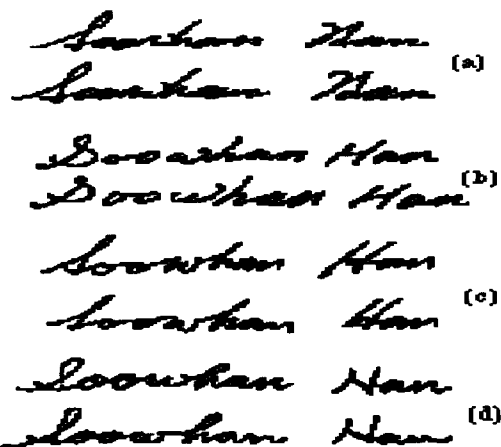 Soowhan Han
Soowhan Han
[a]
Soowhan Han
Soowhan Han
[b]
Soowhan Han
Soowhan Han
[c]
Soowhan Han
Soowhan Han
[d]